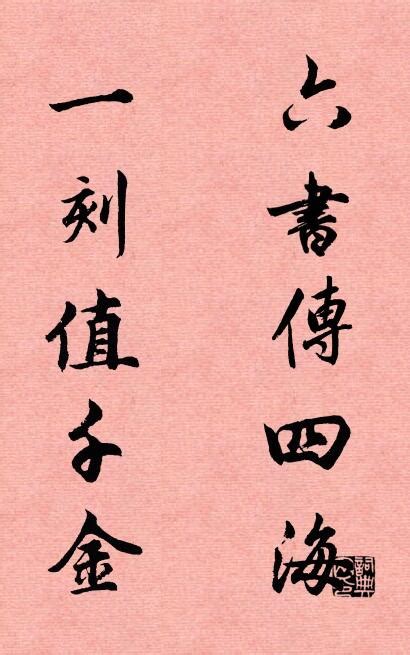 六書傳四海
一刻值千金